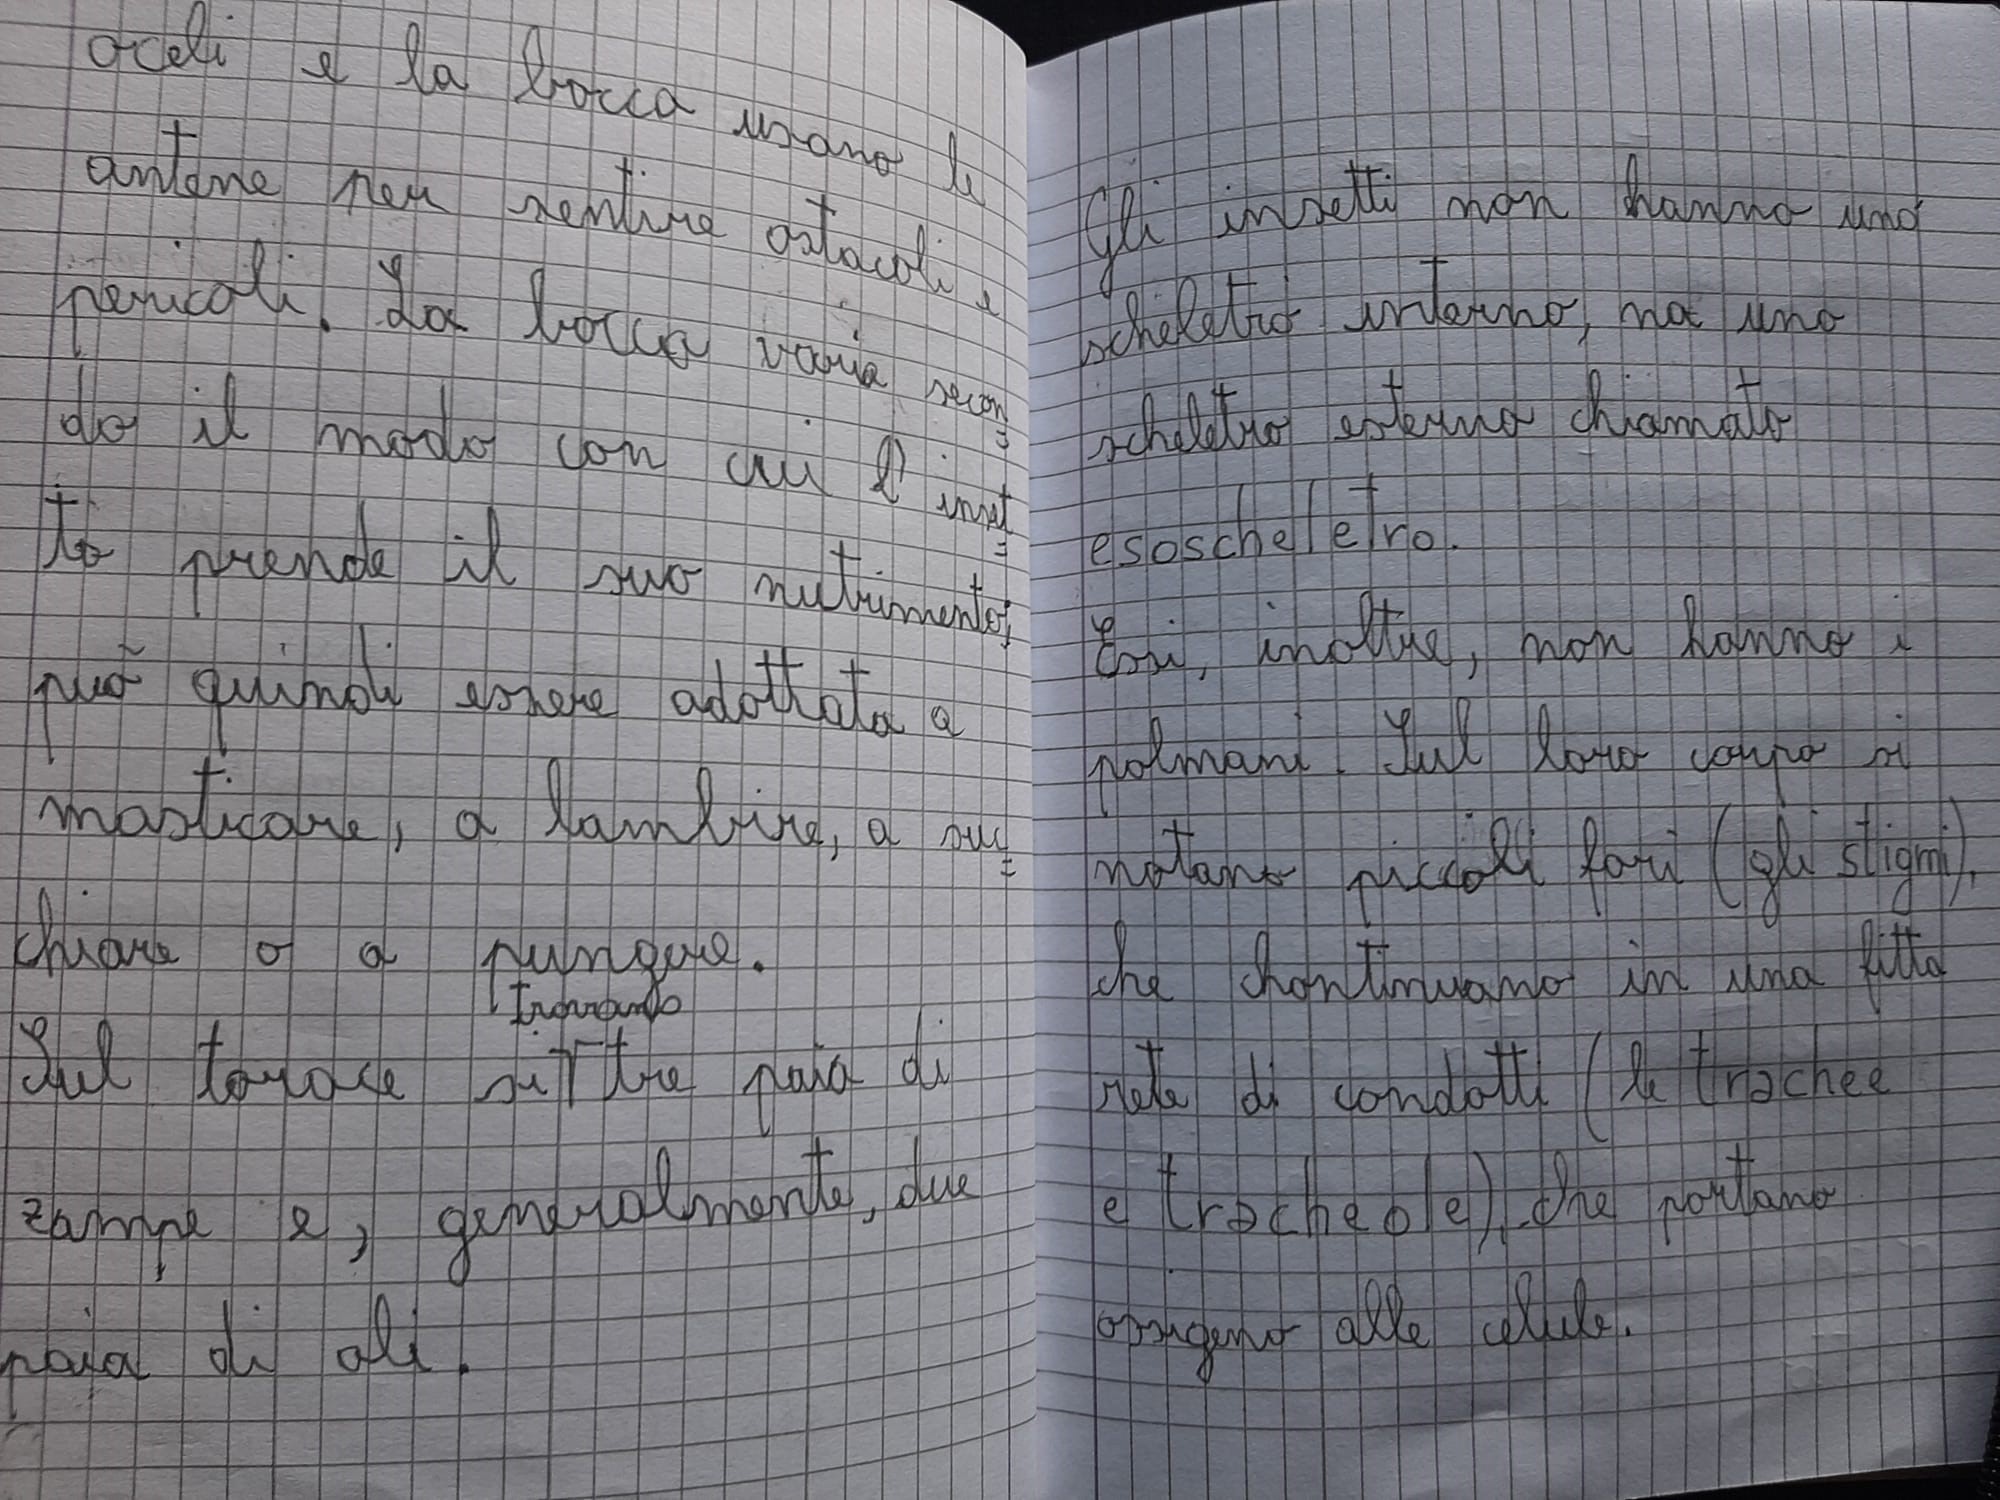 oceli e la bocca usano le
antene per sentire ostacoli e
pericoli. La bocca varia secon=
do il modo con cui l'inset=
to prende il suo nutrimento;
può quindi essere adottata a
masticare, a lambire, a suc=
chiare o a pungere.
trovando
Sul torace si tre paia di
zampe e, generalmente, due
paia di ali.
Gli insetti non hanno uno
scheletro interno, ma uno
scheletro esterno chiamato
esoscheletro.
Essi, inoltre, non hanno i
polmani. Sul loro corpo si
notano piccoli fori (gli stigmi),
che chontinuano in una fitta
rete di condotti (le trachee
e tracheole), che portano
ossigeno alle celule.